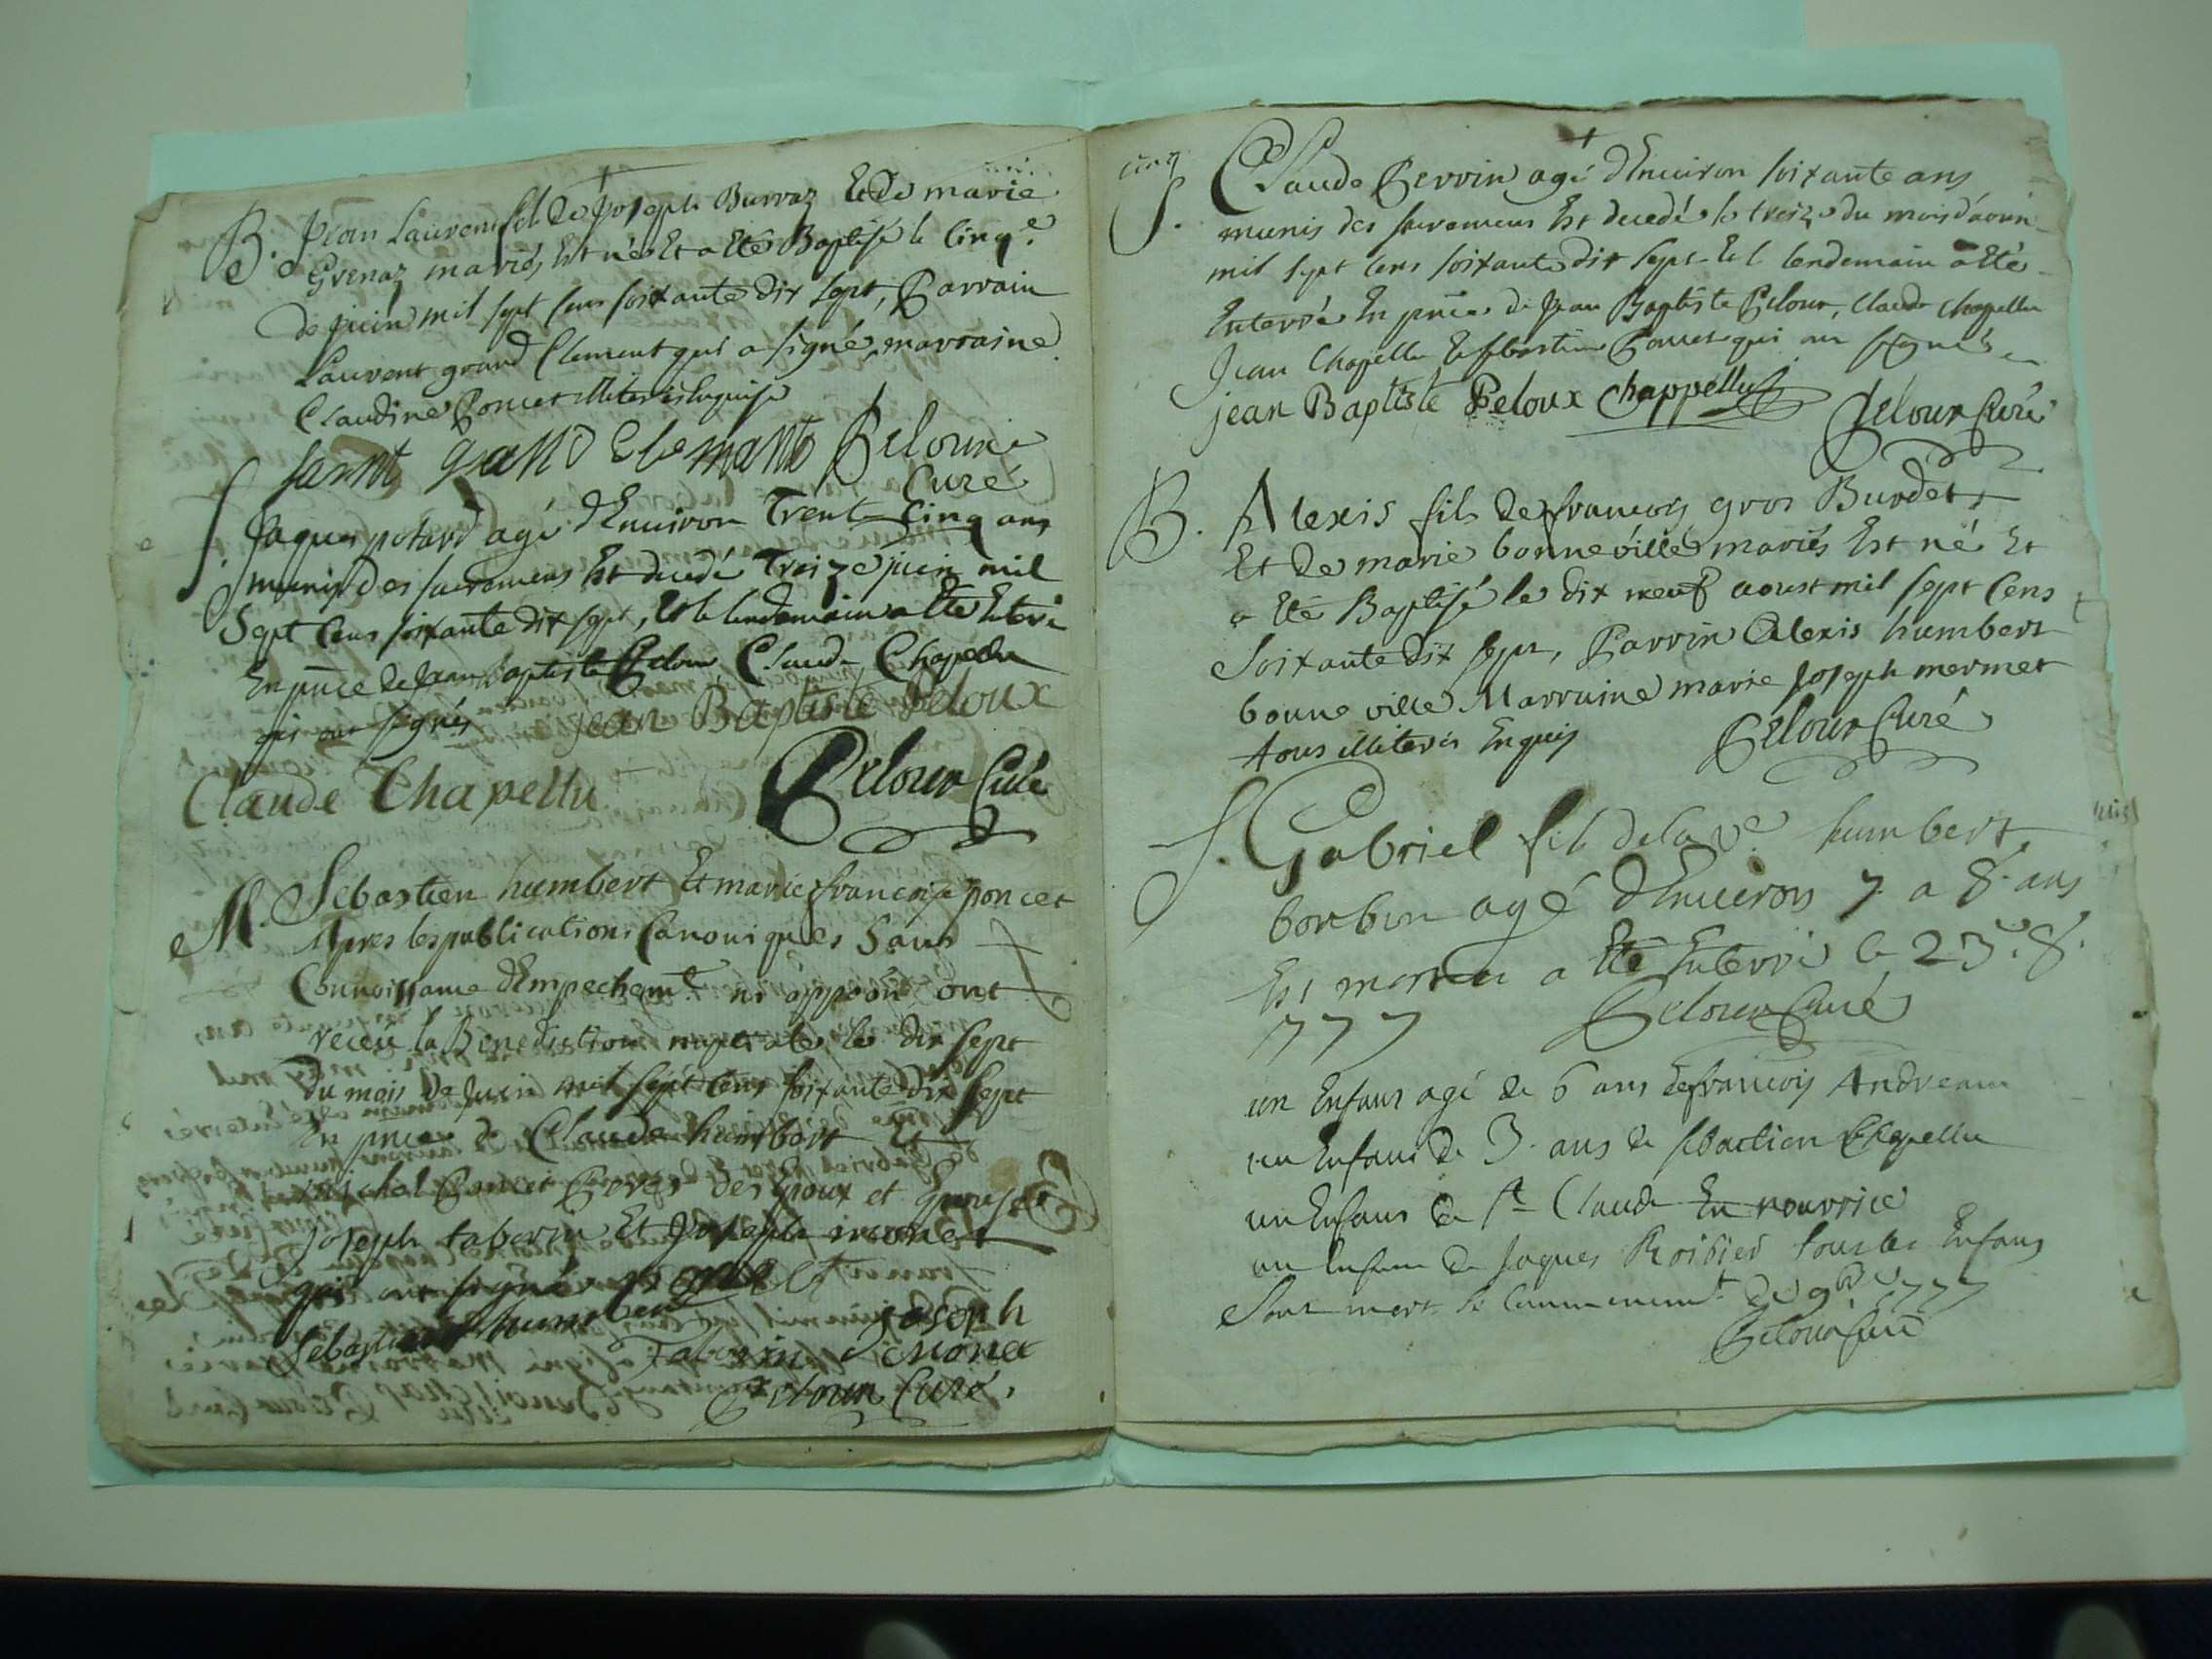 B. Jean Laurent fils de Joseph Burraz Et de marie
Grenaz mariés, Est né Et a Eté Baptisé le Cinq.e
de juin mil sept Cens soixante dix sept, Parrain
Laurent grand Clement qui a signé, marraine
Claudine Poncet illiterée Enquise
grand Clemant Peloux
Curé
S. Jaques potard agé d'Environ Trente Cinq ans
munis des sacremens Est decedé Treize juin mil
Sept Cens soixante dix sept, Et le lendemain a Eté Enterré
En pnce de Jean Baptiste Peloux, Claude Chapellu
qui ont signés jean Baptiste Peloux
Claude Chapellu Peloux Curé
M. Sebastien humbert Et marie françoise poncet
Apres les publications Canoniques Sans
Connoissance d'Empechemt ni oppoõn ont
réceü la Bénédiction nuptiale le dix sept
du mois de Juin mil sept Cens soixante dix sept
En pnce de Claude humbert Et
michel Poncet Peres des Epoux et Epouse
joseph taborin Et Joseph monet
qui ont signé
Sebastien humbert joseph
Taborin monet
Peloux Curé.
cinq
S. Claude Perrin agé d'Environ soixante ans
munis des sacremens Est decedé le treize du mois d'aoun
mil sept Cens soixante dix sept Et l lendemain a Eté
Enterré En pnce de Jean Baptiste Peloux, Claude Chapellu
Jean Chapellu Et sebastien Poncet qui ont signés
jean Baptiste Peloux Chappellu
Peloux Curé
B. Alexis fils de françois gros Burdet,
Et de marie bonneville mariés Est né Et
a Eté Baptisé le dix neuf aoust mil sept Cens
Soixante dix sept, Parrin Alexis humbert
bonne ville Marraine marie Joseph mermet
tous illiterés Enquis Peloux Curé
S. Gabriel fils de la ve humbert
bonbon agé d'Environ 7. a 8. ans
Est mort a Eté Enterré le 23e. 8.
777 Peloux Curé
un Enfant agé de 6 ans de françois Andreau
un Enfant de 3. ans de sebastien Chapellu
un Enfant de st Claude En nourrice
un Enfant de Jaques Roibied tous les Enfans
Sont mort le Commencemt de 9bre 1777
Peloux Curé